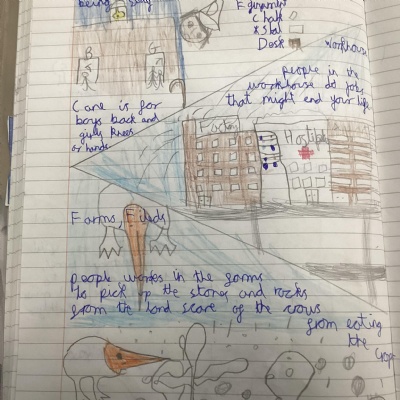 being silly
Equipment
chalk
Desk
workhouse
people in the
workhouse do jobs
that might end your life
B
G
Cane is for
boys back and
girls knees
or hands
Factory
Hostiple
Farms, Fields
people works in the farms
to pick up the stones and rocks
from the land scare of the crows
from eating
the